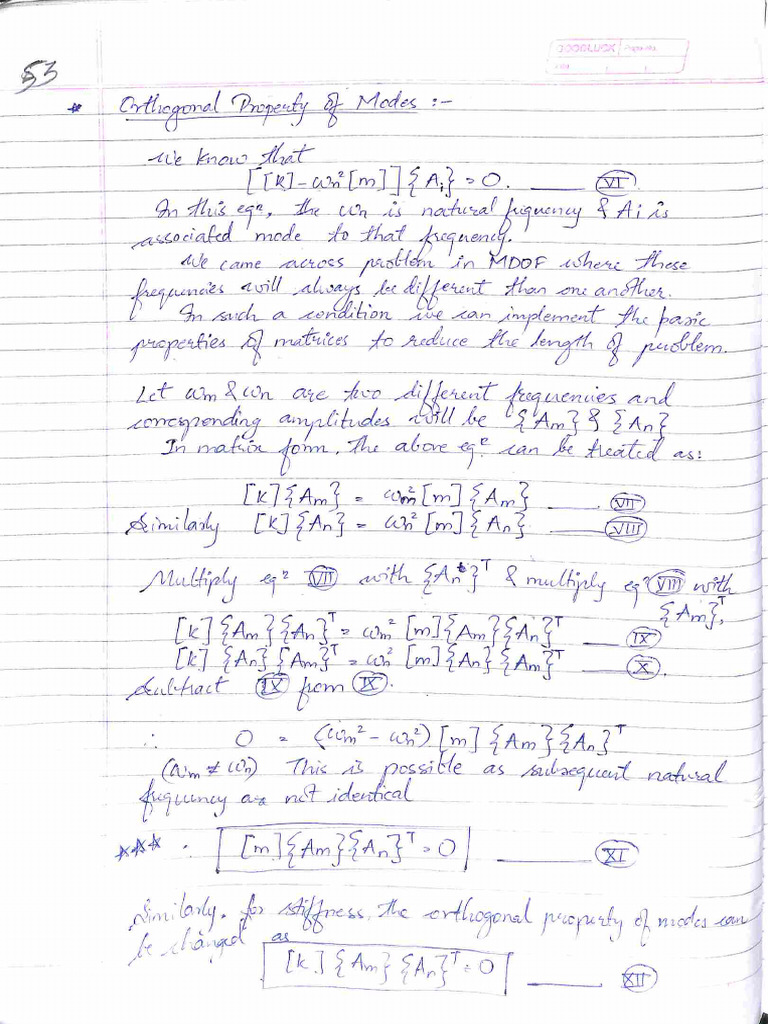 GOODLUCK
53
* Orthogonal Property of Modes :-
We know that
[[k] - ωn²[m]]{Ai} = 0. ——— (VI)
In this eqⁿ, the ωn is natural frequency & Ai is
associated mode to that frequency.
We came across problem in MDOF where these
frequencies will always be different than one another.
In such a condition we can implement the basic
properties of matrices to reduce the length of problem.
Let ωm & ωn are two different frequencies and
corresponding amplitudes will be {Am} & {An}
In matrix form, the above eqⁿ can be treated as:
[k]{Am} = ωm²[m]{Am} ——— (VII)
Similarly [k]{An} = ωn²[m]{An} ——— (VIII)
Multiply eqⁿ (VII) with {An}ᵀ & multiply eqⁿ (VIII) with
{Am}ᵀ,
[k]{Am}{An}ᵀ = ωm² [m]{Am}{An}ᵀ ——— (IX)
[k]{An}{Am}ᵀ = ωn² [m]{An}{Am}ᵀ ——— (X).
Subtract (IX) from (X).
∴ 0 = (ωm² - ωn²)[m]{Am}{An}ᵀ
(ωm ≠ ωn) This is possible as subsequent natural
frequency are not identical
*** . [m]{Am}{An}ᵀ = 0 ——— (XI)
Similarly, for stiffness, the orthogonal property of modes can
be changed as
[k]{Am}{An}ᵀ = 0 ——— (XII)